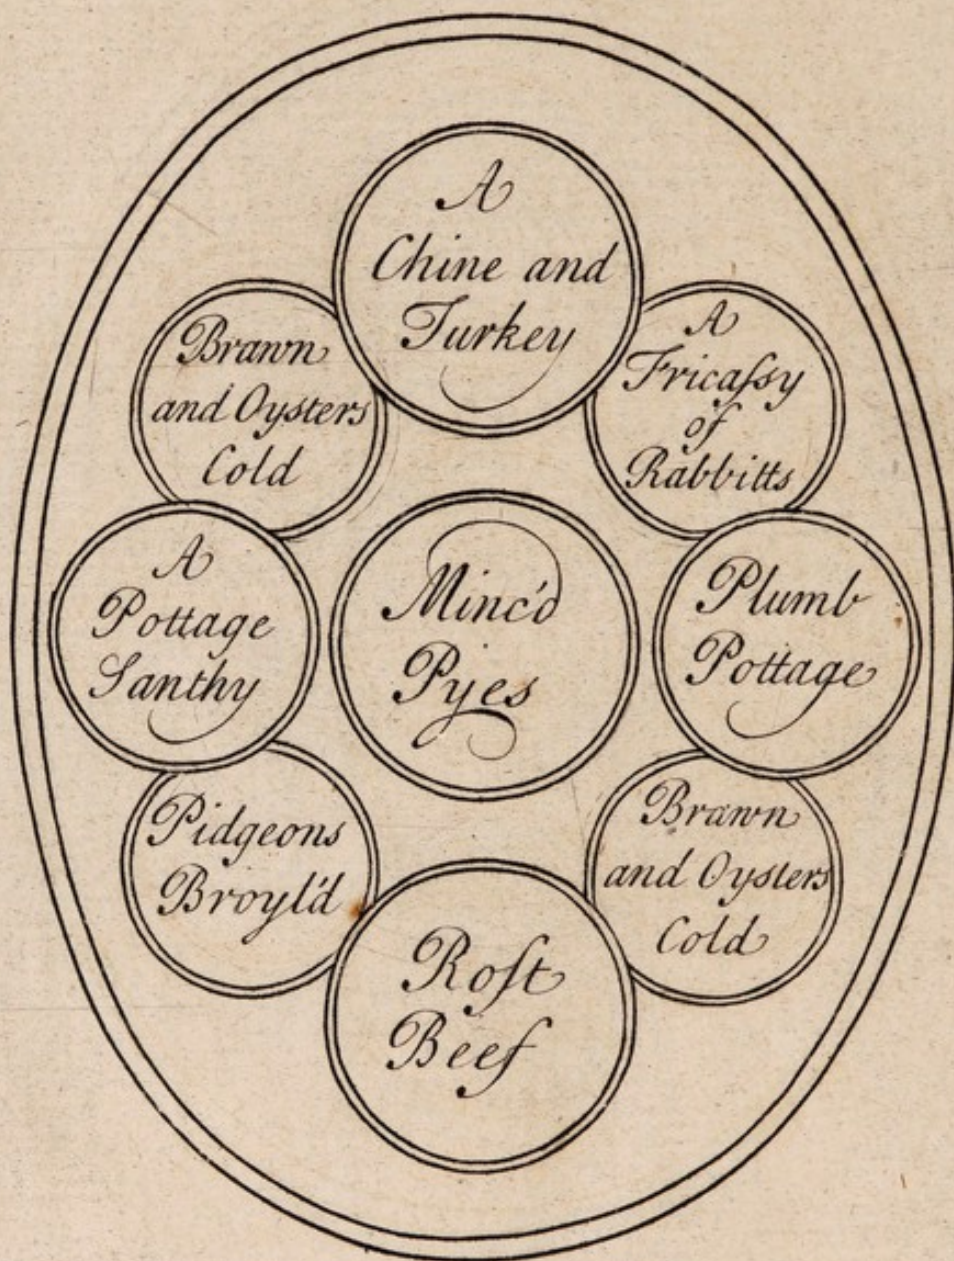 A
Chine and
Turkey
Brawn
and Oysters
Cold
A
Fricaſsy
of
Rabbitts
A
Pottage
Santhy
Minc'd
Pyes
Plumb
Pottage
Pidgeons
Broyl'd
Brawn
and Oysters
Cold
Roſt
Beef